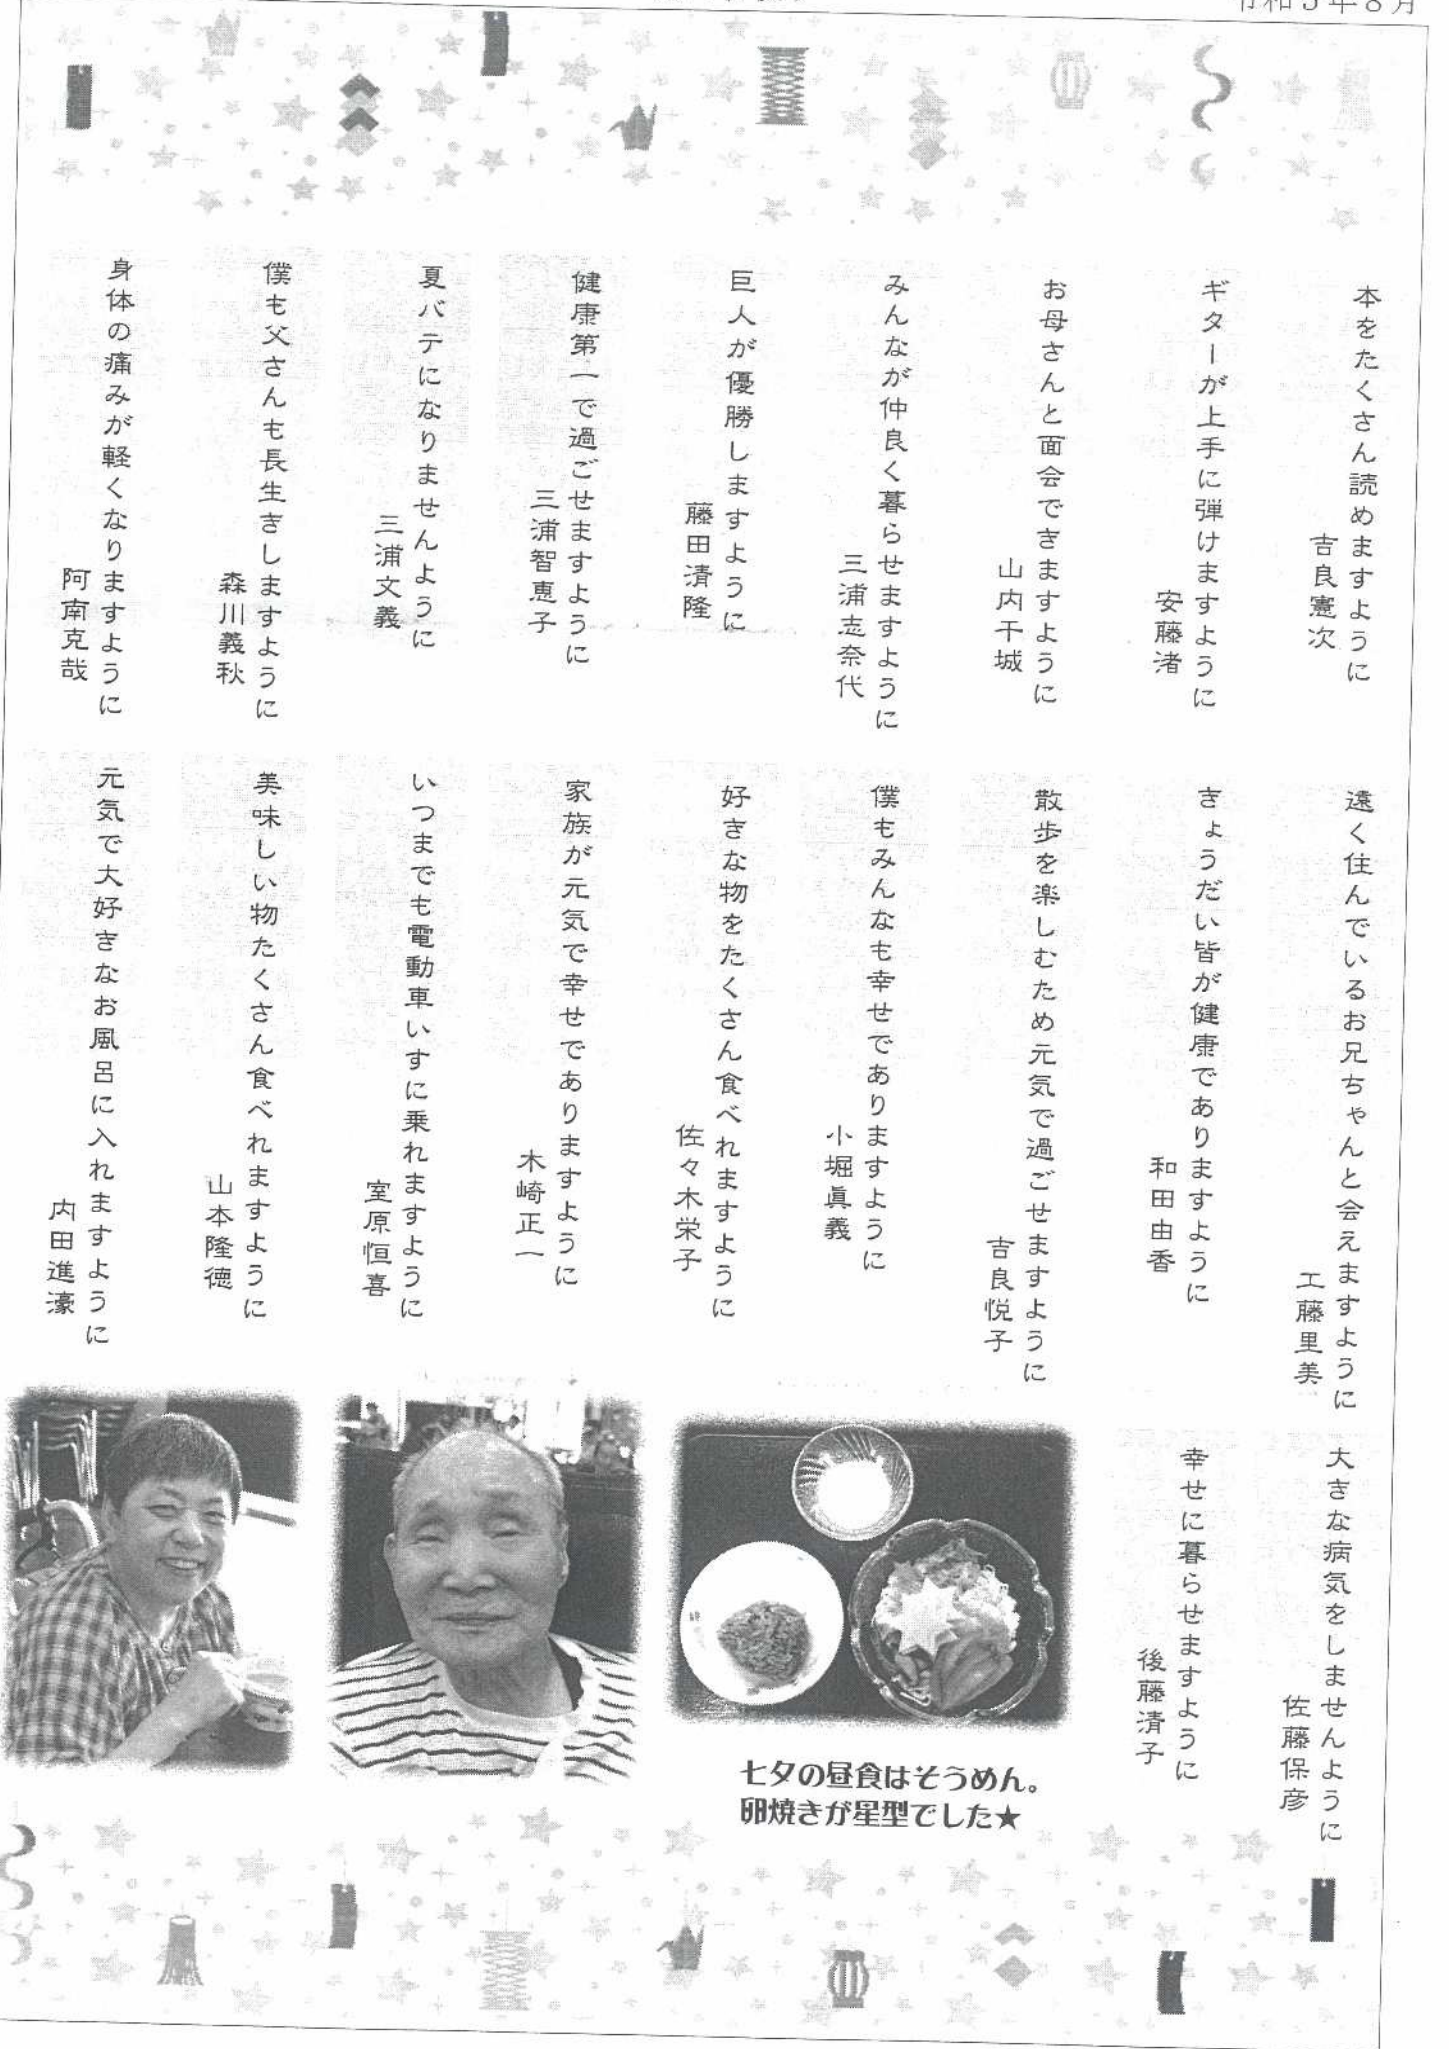 令和5年8月
本をたくさん読めますように
吉良憲次
ギターが上手に弾けますように
安藤渚
お母さんと面会できますように
山内干城
みんなが仲良く暮らせますように
三浦志奈代
巨人が優勝しますように
藤田清隆
健康第一で過ごせますように
三浦智恵子
夏バテになりませんように
三浦文義
僕も父さんも長生きしますように
森川義秋
身体の痛みが軽くなりますように
阿南克哉
遠く住んでいるお兄ちゃんと会えますように
工藤里美
きょうだい皆が健康でありますように
和田由香
散歩を楽しむため元気で過ごせますように
吉良悦子
僕もみんなも幸せでありますように
小堀眞義
好きな物をたくさん食べれますように
佐々木栄子
家族が元気で幸せでありますように
木崎正一
いつまでも電動車いすに乗れますように
室原恒喜
美味しい物たくさん食べれますように
山本隆徳
元気で大好きなお風呂に入れますように
内田進濠
大きな病気をしませんように
佐藤保彦
幸せに暮らせますように
後藤清子
七夕の昼食はそうめん。
卵焼きが星型でした★